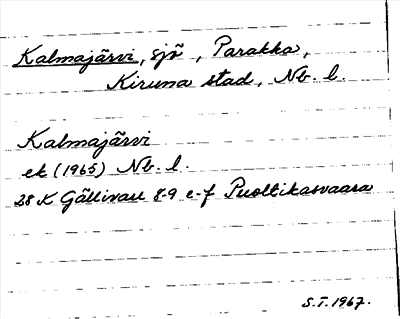 Kalmajärvi, sjö, Parakka,
Kiruna stad, Nb. l.
Kalmajärvi
ek (1965) Nb. l.
28 K Gällivare 8-9 e-f Puoltikasvaara
S.T. 1967.